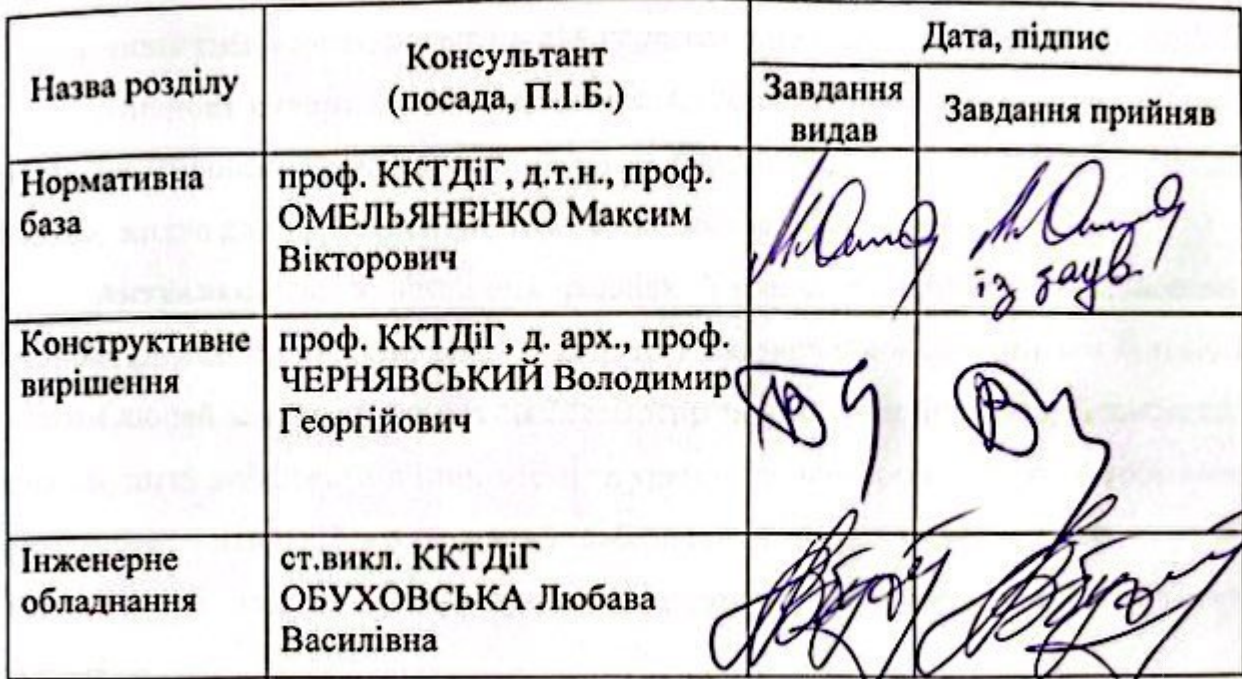 Назва розділу
Консультант
(посада, П.І.Б.)
Дата, підпис
Завдання
видав
Завдання прийняв
Нормативна
база
проф. ККТДіГ , д.т.н., проф.
ОМЕЛЬЯНЕНКО Максим
Вікторович
із заув.
Конструктивне
вирішення
проф. ККТДіГ , д. арх., проф.
ЧЕРНЯВСЬКИЙ Володимир
Георгійович
Інженерне
обладнання
ст.викл. ККТДіГ
ОБУХОВСЬКА Любава
Василівна